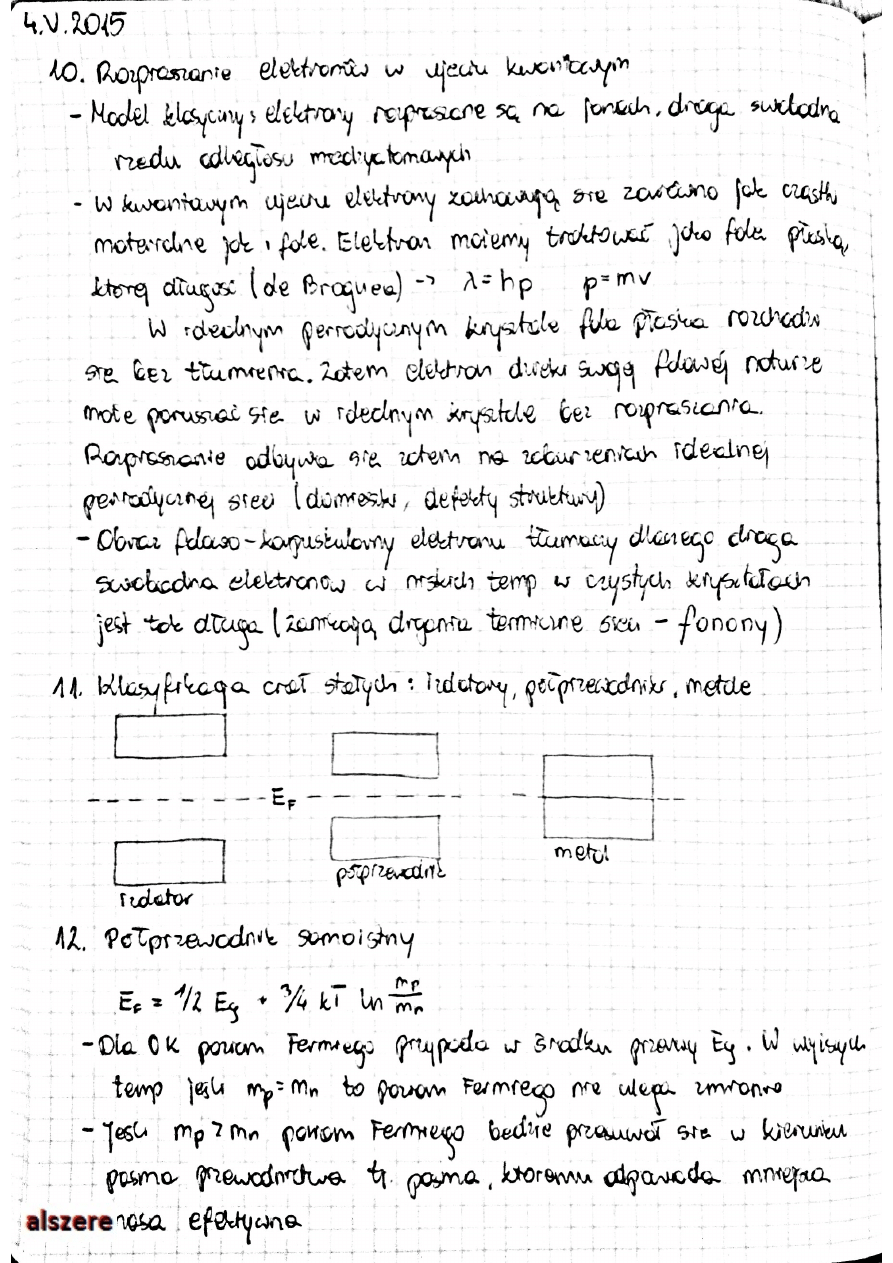 4.V.2015
10. Rozpraszanie elektronów w ujęciu kwantowym
- Model klasyczny: elektrony rozpraszane są na jonach, droga swobodna
rzędu odległości międzyatomowych
- W kwantowym ujęciu elektrony zachowują się zarówno jak cząstki
materialne jak i fale. Elektron możemy traktować jako falę płaską,
której długość (de Broglie'a) -> λ=hp p=mv
W idealnym periodycznym krysztale fala płaska rozchodzi
się bez tłumienia. Zatem elektron dzięki swojej falowej naturze
może poruszać się w idealnym krysztale bez rozpraszania.
Rozpraszanie odbywa się zatem na zaburzeniach idealnej
periodycznej sieci (domieszki, defekty struktury)
- Obraz falowo-korpuskularny elektronu tłumaczy dlaczego droga
swobodna elektronów w niskich temp w czystych kryształach
jest tak długa (zanikają drgania termiczne sieci - fonony)
11. Klasyfikacja ciał stałych: izolatory, półprzewodniki, metale
E_F
izolator półprzewodnik metal
12. Półprzewodnik samoistny
E_F = 1/2 E_g + 3/4 kT ln m_p/m_n
- Dla 0K poziom Fermiego przypada w środku przerwy Eg. W wyższych
temp jeśli m_p = m_n to poziom Fermiego nie ulega zmianie
- Jeśli m_p > m_n poziom Fermiego będzie przesuwał się w kierunku
pasma przewodnictwa tj. pasma, któremu odpowiada mniejsza
alszere masa efektywna